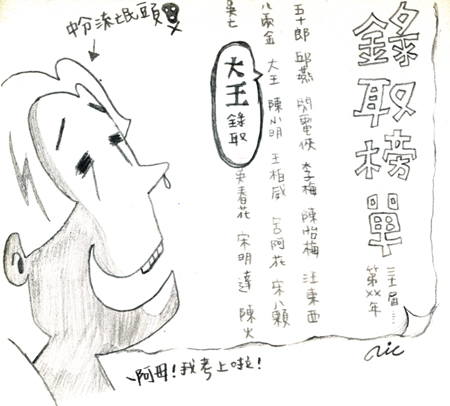 錄取榜單
第××年
五十郎 邱燕 閃電俠 李梅 陳怡梅 汪東西
八兩金 大王 陳小明 王柏威 呂阿花 宋八顆
吳七
大王錄取
吳春花 宋明達 陳火
中分流氓頭
阿母！我考上啦！